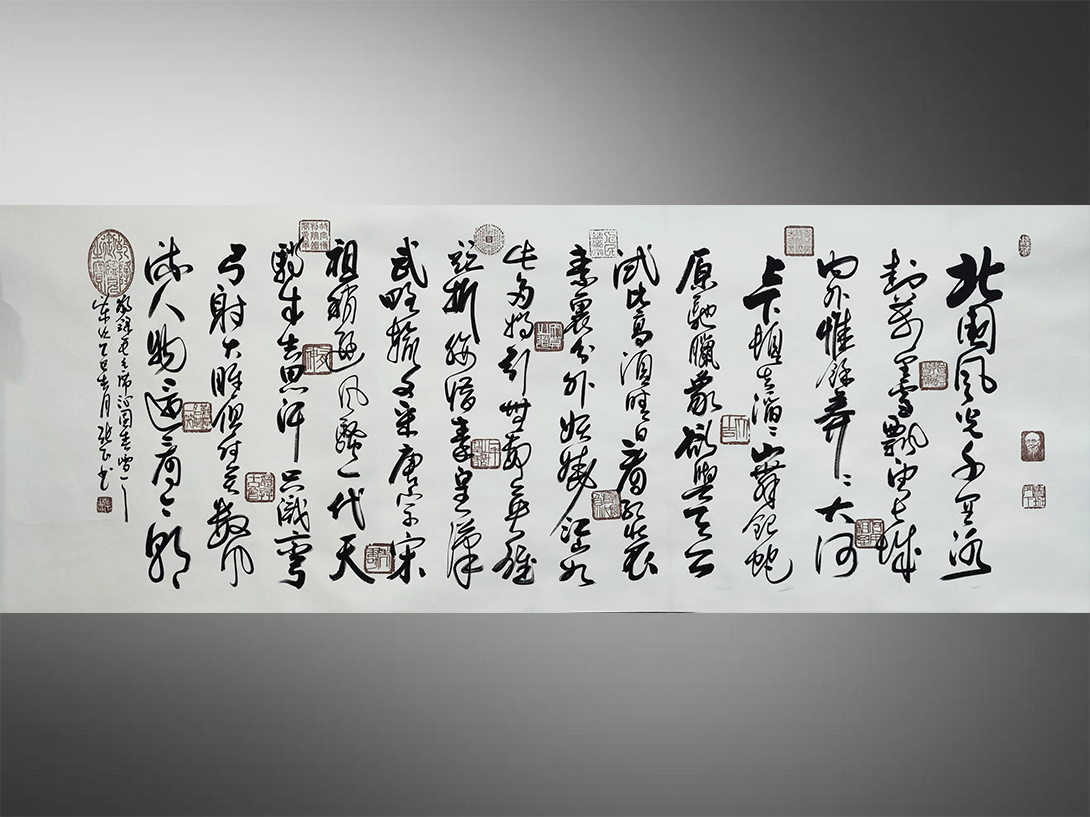 北國风光千里冰
封万里雪飘望长城
内外惟余莽々大河
上下顿失滔々山舞银蛇
原驰臘象欲與天公
试比高须晴日看红装
素裹分外妖娆江山如
此多娇引無数英雄
竞折腰惜秦皇漢
武略输文采唐宗宋
祖稍逊风骚一代天
骄成吉思汗只识弯
弓射大雕俱往矣数风
流人物还看今朝
敬録毛主席沁园春雪一
岁次乙巳春月